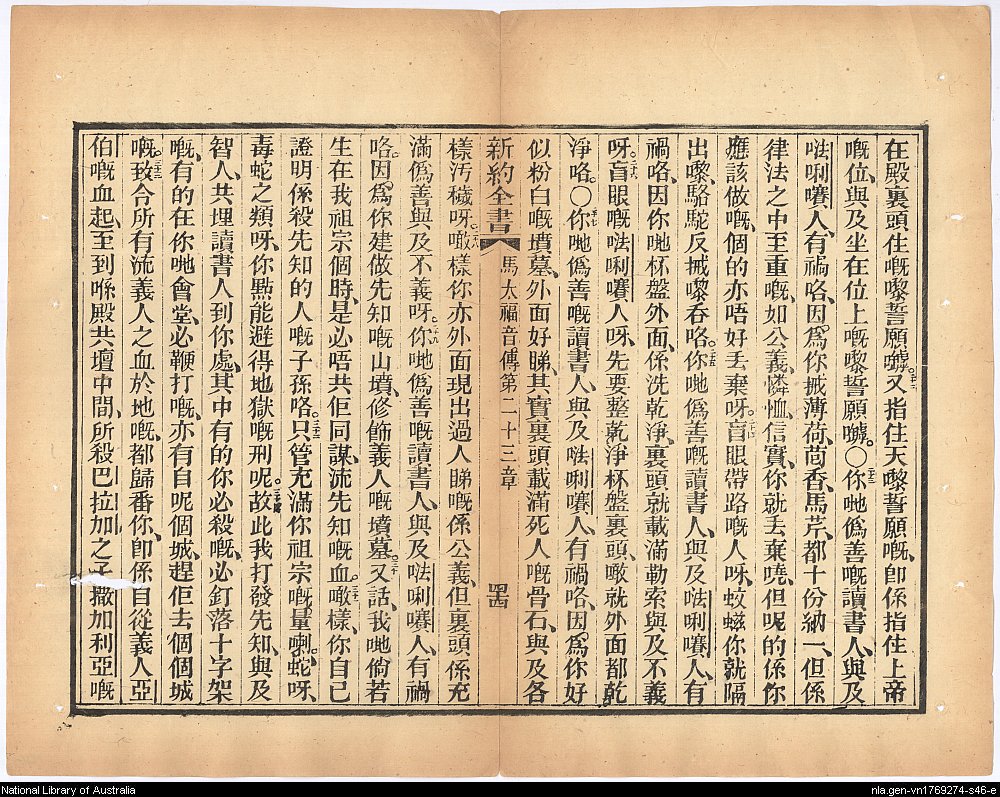 在殿裏頭住嘅嚟誓願囉。二十二又指住天嚟誓願嘅、卽係指住上帝
嘅位、與及坐在位上嘅嚟誓願囉。○二十三你哋僞善嘅讀書人、與及
𠵽唎賽人、有禍咯、因爲你㧻薄荷、茴香、馬芹、都十份納一、但係
律法之中至重嘅、如公義、憐恤、信實、你就丟棄嘵、但呢的係你
應該做嘅、個的亦唔好丟棄呀。二十四盲眼帶路嘅人呀、蚊蟻你就隔
出嚟、駱駝反㧻嚟吞咯。二十五你哋僞善嘅讀書人、與及𠵽唎賽人、有
禍咯、因你哋杯盤外面、係洗乾淨、裏頭就載滿勒索與及不義
呀。二十六盲眼嘅𠵽唎賽人呀、先要整乾淨杯盤裏頭、噉就外面都乾
淨咯。○二十七你哋僞善嘅讀書人、與及𠵽唎賽人、有禍咯、因爲你好
似粉白嘅墳墓、外面好睇、其實裏頭載滿死人嘅骨石、與及各
新約全書 馬太福音傳第二十三章 四四
樣汚穢呀。二十八噉樣你亦外面現出過人睇嘅係公義、但裏頭係充
滿僞善與及不義呀。二十九你哋僞善嘅讀書人、與及𠵽唎賽人、有禍
咯、因爲你建做先知嘅山墳、修飾義人嘅墳墓。三十又話、我哋倘若
生在我祖宗個時、是必唔共佢同謀、流先知嘅血。三十一噉樣、你自己
證明係殺先知的人嘅子孫咯。三十二只管充滿你祖宗嘅量喇。三十三蛇呀、
毒蛇之類呀、你點能避得地獄嘅刑呢。三十四故此我打發先知、與及
智人、共埋讀書人到你處、其中有的你必殺嘅、必釘落十字架
嘅、有的在你哋會堂、必鞭打嘅、亦有自呢個城、趕佢去個個城
嘅。三十五致合所有流義人之血於地嘅、都歸番你、卽係自從義人亞
伯嘅血起、至到喺殿共壇中間、所殺巴拉加之子撒加利亞嘅
National Library of Australia
nla.gen-vn1769274-s46-e